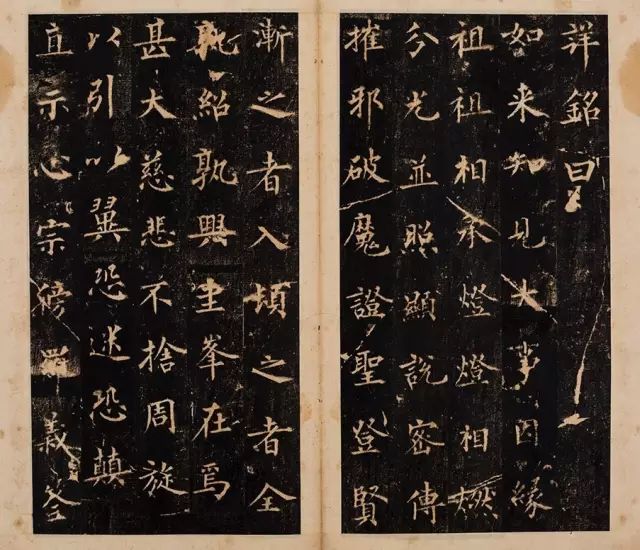 詳銘曰
如来知見大事因緣
祖祖相承燈燈相燃
分光並照顯說密傳
摧邪破魔證聖登賢
漸之者入頓之者全
孰紹孰興圭峯在焉
甚大慈悲不捨周旋
以引以翼恐迷恐顛
直示心宗傍羅義筌